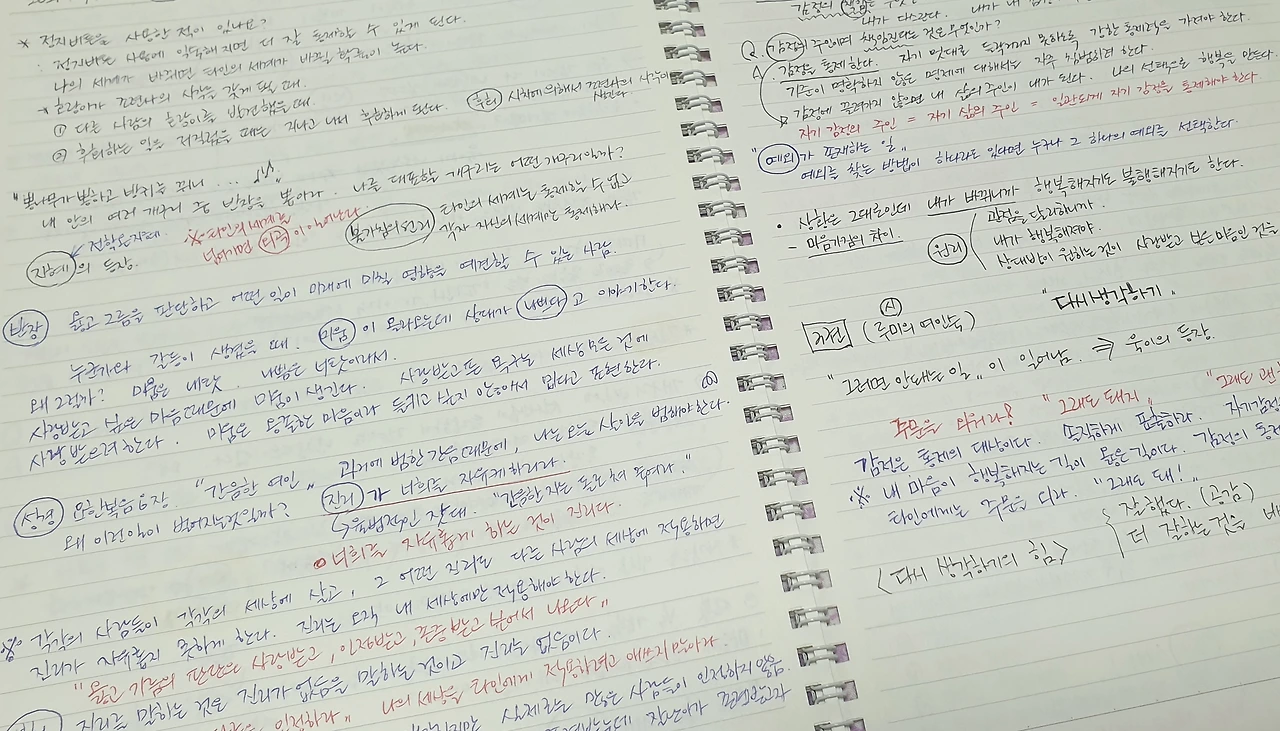 * 전지버튼을 사용한 적이 있나요?
: 전지버튼 사용에 익숙해지면 더 잘 통제할 수 있게 된다.
나의 세계가 바뀌면 타인의 세계가 바뀔 확률이 높다.
* 호랑이가 조련사의 시각을 갖게 될 때.
① 다른 사람의 호랑이를 발견했을 때.
② 후회하는 일을 저질렀을 때는 지나고 나서 후회하게 된다.
후회 시차에 의해서 조련사의 시각이
"뽕나무가 뽕하고 방귀를 뀌니 ...
내 안의 여러 개구리 중 반장을 뽑아라. 나를 대표할 개구리는 어떤 개구리일까?
전학온자대.
지혜의 등장.
※ 타인의 세계로 넘어가면 비극이 일어난다
불가침의 원리
타인의 세계는 통제할 수 없고
각자 자신의 세계만 통제해라.
반장 옳고 그름을 판단하고 어떤 일이 미래에 미칠 영향을 예견할 수 있는 사람.
누군가와 갈등이 생겼을 때. 미움이 올라오는데 상대가 나쁘다고 이야기한다.
왜 그럴까? 미움은 내탓. 나쁨은 너탓이라서.
사랑받고 싶은 마음 때문에 미움이 생긴다. 사랑받고픈 욕구는 세상 모든 것에
사랑 받으려 한다. 미움은 응큼한 마음이라 들키고 싶지 않아서 밉다고 표현한다.
성경 요한복음 8장. "간음한 여인" 과거에 범한 간음 때문에, 나는 오늘 살인을 범해야 한다.
왜 이런일이 벌어지는 것일까? 진리가 너희를 자유케 하리라.
율법적인 잣대. "간음한 자는 돌로 쳐 죽여라."
너희를 자유롭게 하는 것이 진리다.
※ 각각의 사람들이 각각의 세상에 살고, 그 어떤 진리도 다른 사람의 세상에 적용하면
진리가 자유롭지 못하게 한다. 진리는 오직 내 세상에만 적용해야 한다.
"옳고 그름의 판단은 사랑받고, 인정받고, 존중 받고 싶어서 나온다"
진리를 말하는 것은 진리가 없음을 말하는 것이고 진리는 없음이다.
인정하라" 나의 세상을 타인에게 적용하려고 애쓰지 말아라.
실제로는 많은 사람들이 인정하지 않음.
내가 다스린다.
Q. 감정의 주인이며 책임진다는 것은 무엇인가?
A. 감정을 통제한다. 자기 멋대로 돌아가지 못하도록 강한 통제력을 가져야 한다.
기준이 명확하지 않은 명제에 대해서는 자주 침범하려 한다.
감정에 끌려가지 않으면 내 삶의 주인이 내가 된다. 나의 선택으로 행복을 만든다.
자기 감정의 주인 = 자기 삶의 주인 = 일관되게 자기 감정을 통제해야 한다.
"예외가 존재하는 일"
예외를 찾는 방법이 하나라도 있다면 누구나 그 하나의 예외를 선택한다.
• 상황은 그대로인데 내가 바뀌니까 행복해지기도 불행해지기도 한다.
- 마음가짐의 차이.
원리
관점을 달리하니까.
내가 행복해져야.
상대방이 원하는 것이 사랑받고 싶은 마음인 것을
"다시 생각하기"
고전 시 (루미의 여인숙)
"그러면 안되는 일"이 일어남. ⇒ 욱이의 등장.
주문을 외워라? "그래도 돼지" "그래도 괜
감정은 통제의 대상이다. 솔직하게 표출하라. 자기감정
※ 내 마음이 행복해지는 길이 옳은 길이다. 감정의 통제
타인에게는 주문을 디라. "그래도 돼!"
잘했다. (공감)
더 잘하는 것을
<다시 생각하기의 힘>